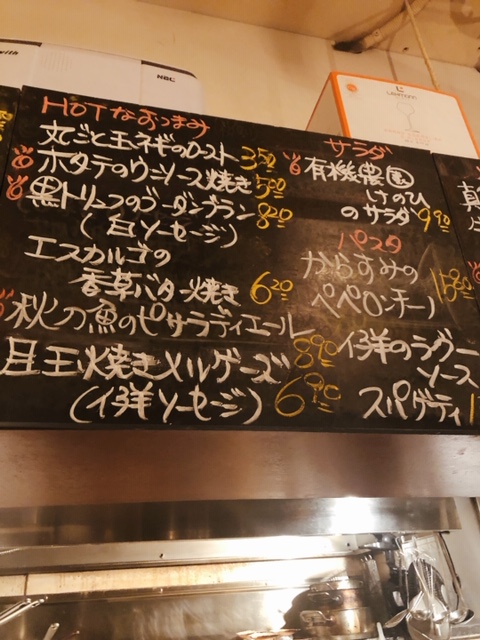 HOTなおつまみ
丸ごと玉ネギのロースト 350
ホタテのウニソース焼き 500
黒トリュフのブーダンブラン
(白ソーセージ) 820
エスカルゴの
香草バター焼き 620
秋刀魚のピサラディエール
890
目玉焼きメルゲーズ
(仔洋ソーセージ) 690
サラダ
有機農園
けのひ
のサラダ 990
パスタ
からすみの
ペペロンチーノ 1580
仔洋のラグー
ソース
スパゲティ
NEC